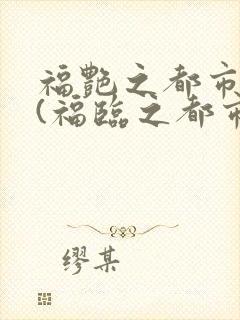 福艷之都市
(福臨之都市
缪某